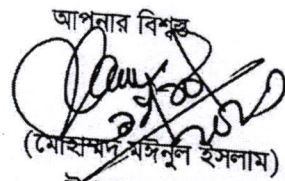 আপনার বিশ্বস্ত
(মোহাম্মদ মঈনুল ইসলাম)